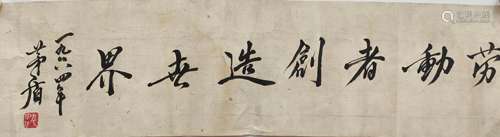 劳動者創造世界
一九六四年
茅盾